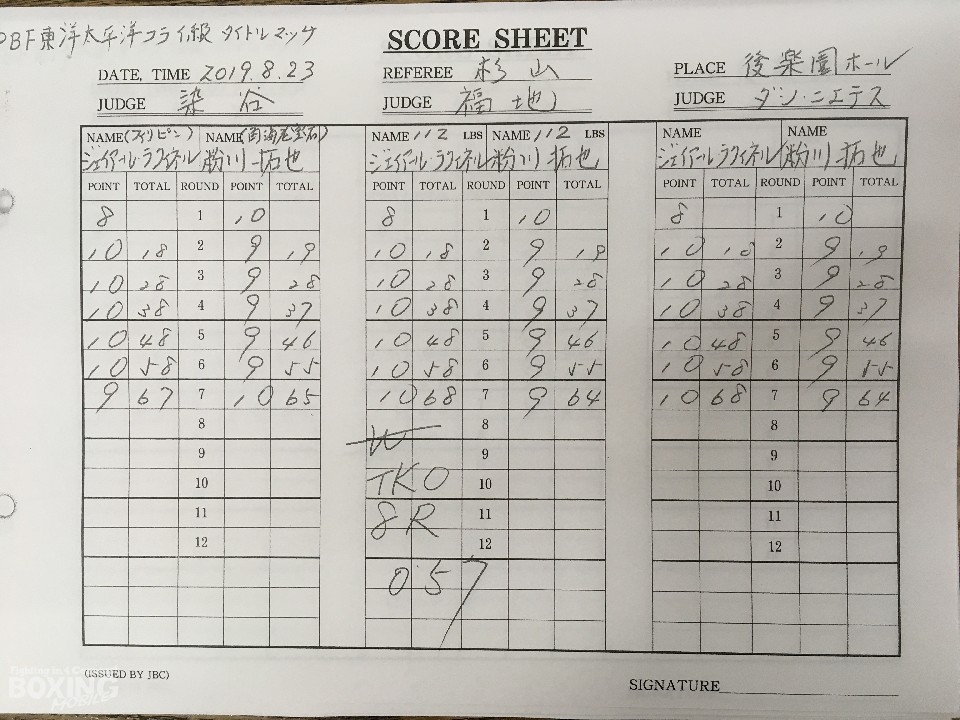 PBF東洋太平洋フライ級 タイトルマッチ
SCORE SHEET
DATE, TIME 2019.8.23 REFEREE 杉山 PLACE 後楽園ホール
JUDGE 染谷 JUDGE 福地 JUDGE ダン・ニエテス
NAME (フィリピン) NAME NAME 112 LBS NAME 112 LBS NAME NAME
ジェイアール・ラクィネル 粉川拓也 ジェイアール・ラクィネル 粉川拓也 ジェイアール・ラクィネル 粉川拓也
POINT TOTAL ROUND POINT TOTAL POINT TOTAL ROUND POINT TOTAL POINT TOTAL ROUND POINT TOTAL
8 1 10 8 1 10 8 1 10
10 18 2 9 19 10 18 2 9 19 10 18 2 9 19
10 28 3 9 28 10 28 3 9 28 10 28 3 9 28
10 38 4 9 37 10 38 4 9 37 10 38 4 9 37
10 48 5 9 46 10 48 5 9 46 10 48 5 9 46
10 58 6 9 55 10 58 6 9 55 10 58 6 9 55
9 67 7 10 65 10 68 7 9 64 10 68 7 9 64
8 8 8
9 W 9 9
10 TKO 10 10
11 8R 11 11
12 12 12
057
(ISSUED BY JBC)
SIGNATURE
BOXING
MOBILE